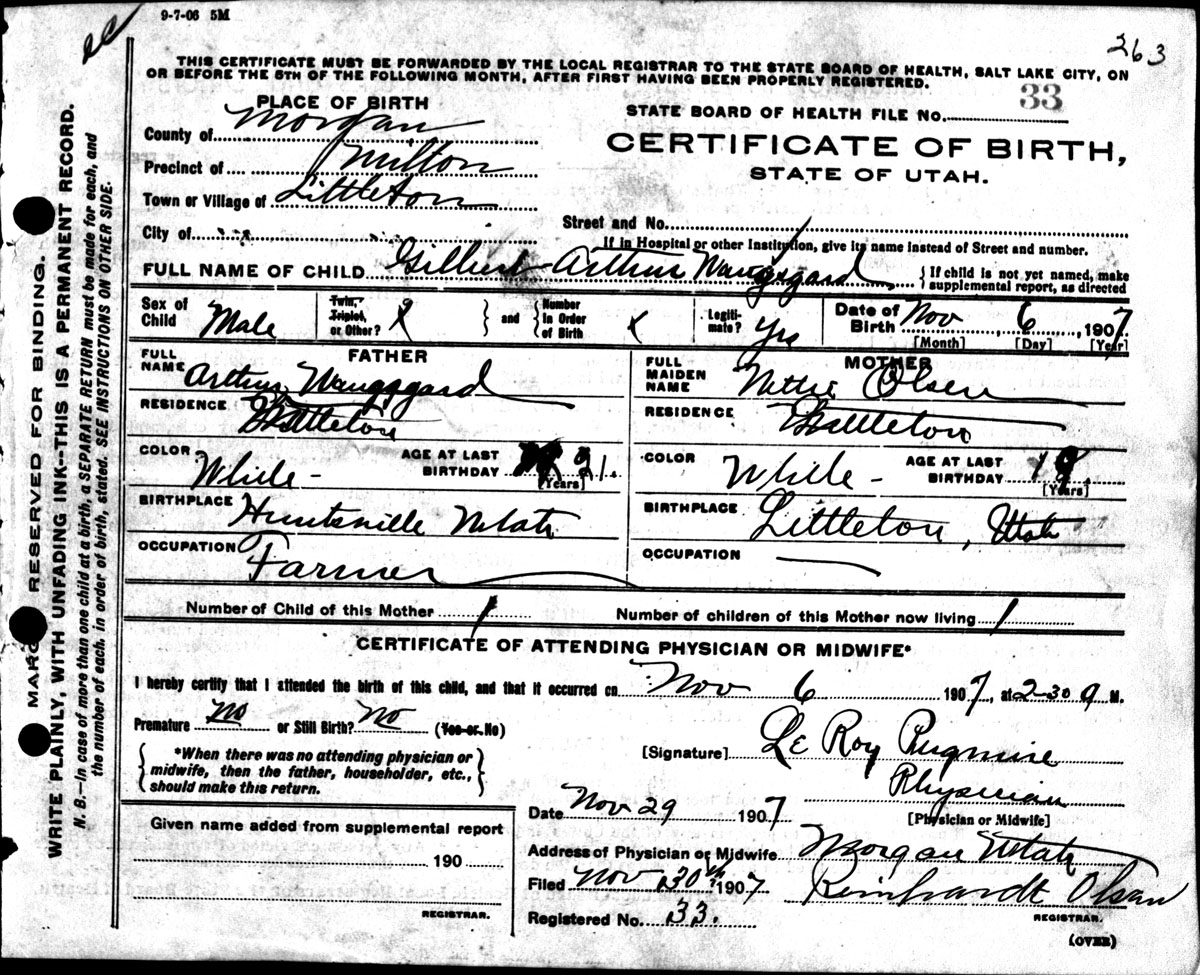 9-7-06 5M
263
THIS CERTIFICATE MUST BE FORWARDED BY THE LOCAL REGISTRAR TO THE STATE BOARD OF HEALTH, SALT LAKE CITY, ON
OR BEFORE THE 5TH OF THE FOLLOWING MONTH, AFTER FIRST HAVING BEEN PROPERLY REGISTERED.
MARGIN RESERVED FOR BINDING.
WRITE PLAINLY, WITH UNFADING INK--THIS IS A PERMANENT RECORD.
N. B.—In case of more than one child at a birth, a SEPARATE RETURN must be made for each, and
the number of each, in order of birth, stated. SEE INSTRUCTIONS ON OTHER SIDE.
PLACE OF BIRTH
County of Morgan
Precinct of Milton
Town or Village of Littleton
City of
STATE BOARD OF HEALTH FILE NO. 33
CERTIFICATE OF BIRTH,
STATE OF UTAH.
Street and No.
If in Hospital or other Institution, give its name instead of Street and number.
FULL NAME OF CHILD Gilbert Arthur Wangsgard { If child is not yet named, make
supplemental report, as directed
Sex of Child Male
Twin, Triplet, or Other? } and { Number In Order of Birth
Legitimate? Yes
Date of Birth Nov 6, 1907
[Month] [Day] [Year]
FATHER
FULL NAME Arthur Wangsgard
RESIDENCE Littleton
COLOR White - AGE AT LAST BIRTHDAY 21. [Years]
BIRTHPLACE Huntsville Utah
OCCUPATION Farmer
MOTHER
FULL MAIDEN NAME Nettie Olsen
RESIDENCE Littleton
COLOR White - AGE AT LAST BIRTHDAY 19 [Years]
BIRTHPLACE Littleton, Utah
OCCUPATION
Number of Child of this Mother 1 Number of children of this Mother now living 1
CERTIFICATE OF ATTENDING PHYSICIAN OR MIDWIFE*
I hereby certify that I attended the birth of this child, and that it occurred on Nov 6 1907, at 2-30 a M.
Premature No or Still Birth? No (Yes or No)
{ *When there was no attending physician or
midwife, then the father, householder, etc.,
should make this return. }
[Signature] Le Roy Pugmire
Physician
[Physician or Midwife]
Date Nov 29 1907
Address of Physician or Midwife Morgan Utah
Filed Nov 30th 1907 Reinhardt Olsen
REGISTRAR.
Registered No. 33.
Given name added from supplemental report
190
REGISTRAR.
(OVER)